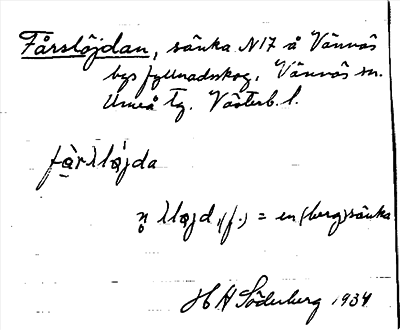 Fårslöjdan, sänka N17 å Vännäs
bys fyllnadsskog, Vännäs sn.
Umeå tg. Västerb. l.
(f.) = en (berg)sänka
H H Söderberg 1934